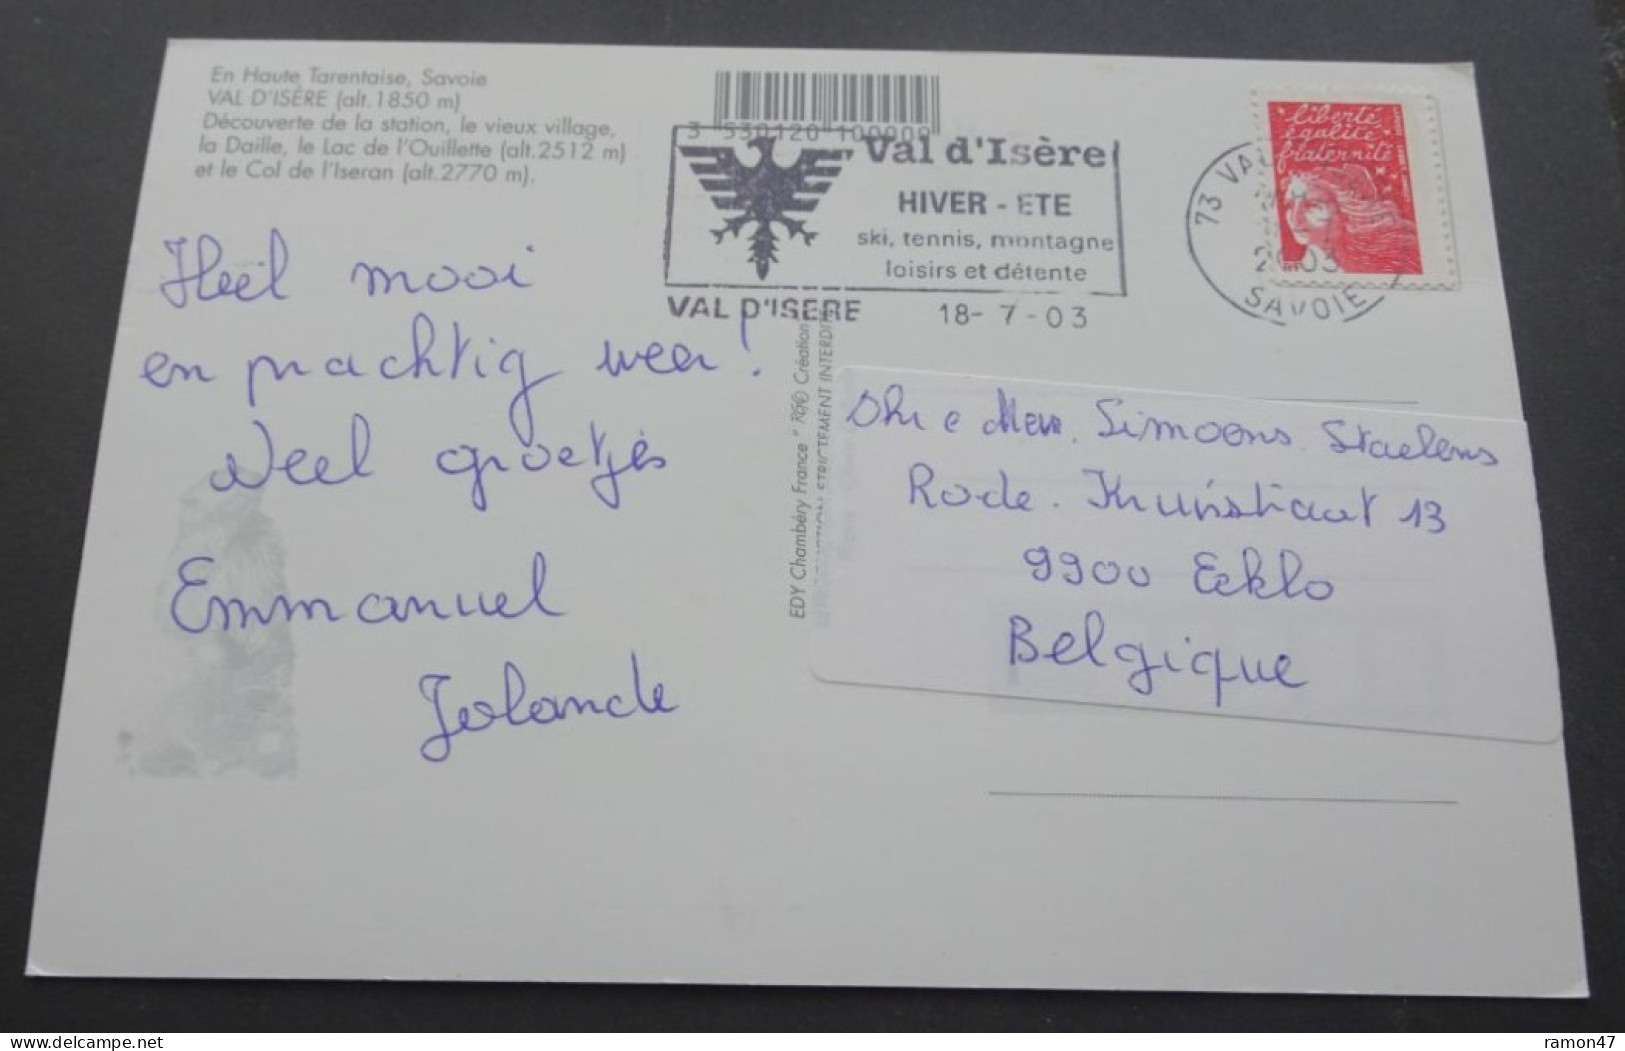 En Haute Tarentaise, Savoie
VAL D'ISÈRE (alt.1850 m)
Découverte de la station, le vieux village,
la Daille, le Lac de l'Ouillette (alt.2512 m)
et le Col de l'Iseran (alt.2770 m).
3 530120 100909
Val d'Isère
HIVER - ETE
ski, tennis, montagne
loisirs et détente
VAL D'ISERE 18- 7 - 03
73 VAL
2003
SAVOIE
liberté
égalité
fraternité
Heel mooi
en prachtig weer!
Veel groetjes
Emmanuel
Jolande
EDY Chambéry France " R&© Création
STRICTEMENT INTERDITE
Dhr e Mevr. Simoens. Staelens
Rode. Kruisstraat 13
9900 Eeklo
Belgique
ramon47